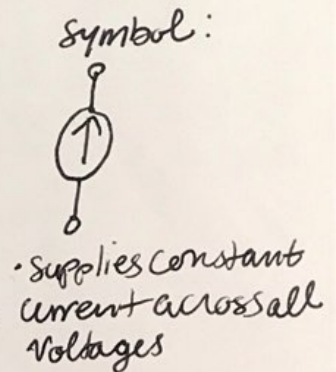 symbol:
• supplies constant
current across all
voltages